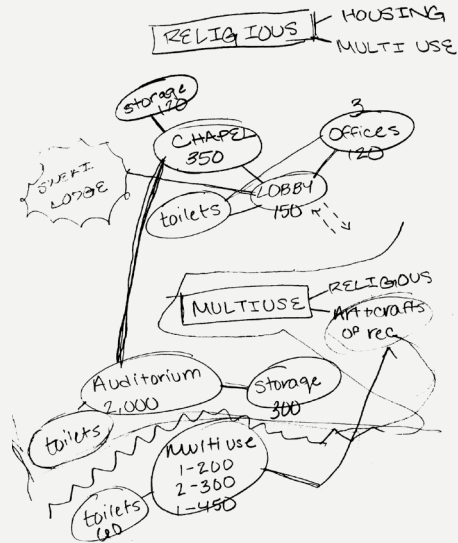 RELIGIOUS
HOUSING
MULTI USE
storage
120
CHAPEL
350
3
Offices
120
SWEAT
LODGE
toilets
LOBBY
150
MULTIUSE
RELIGIOUS
Art+crafts
or rec
Auditorium
2,000
Storage
300
toilets
Multiuse
1-200
2-300
1-450
toilets
60